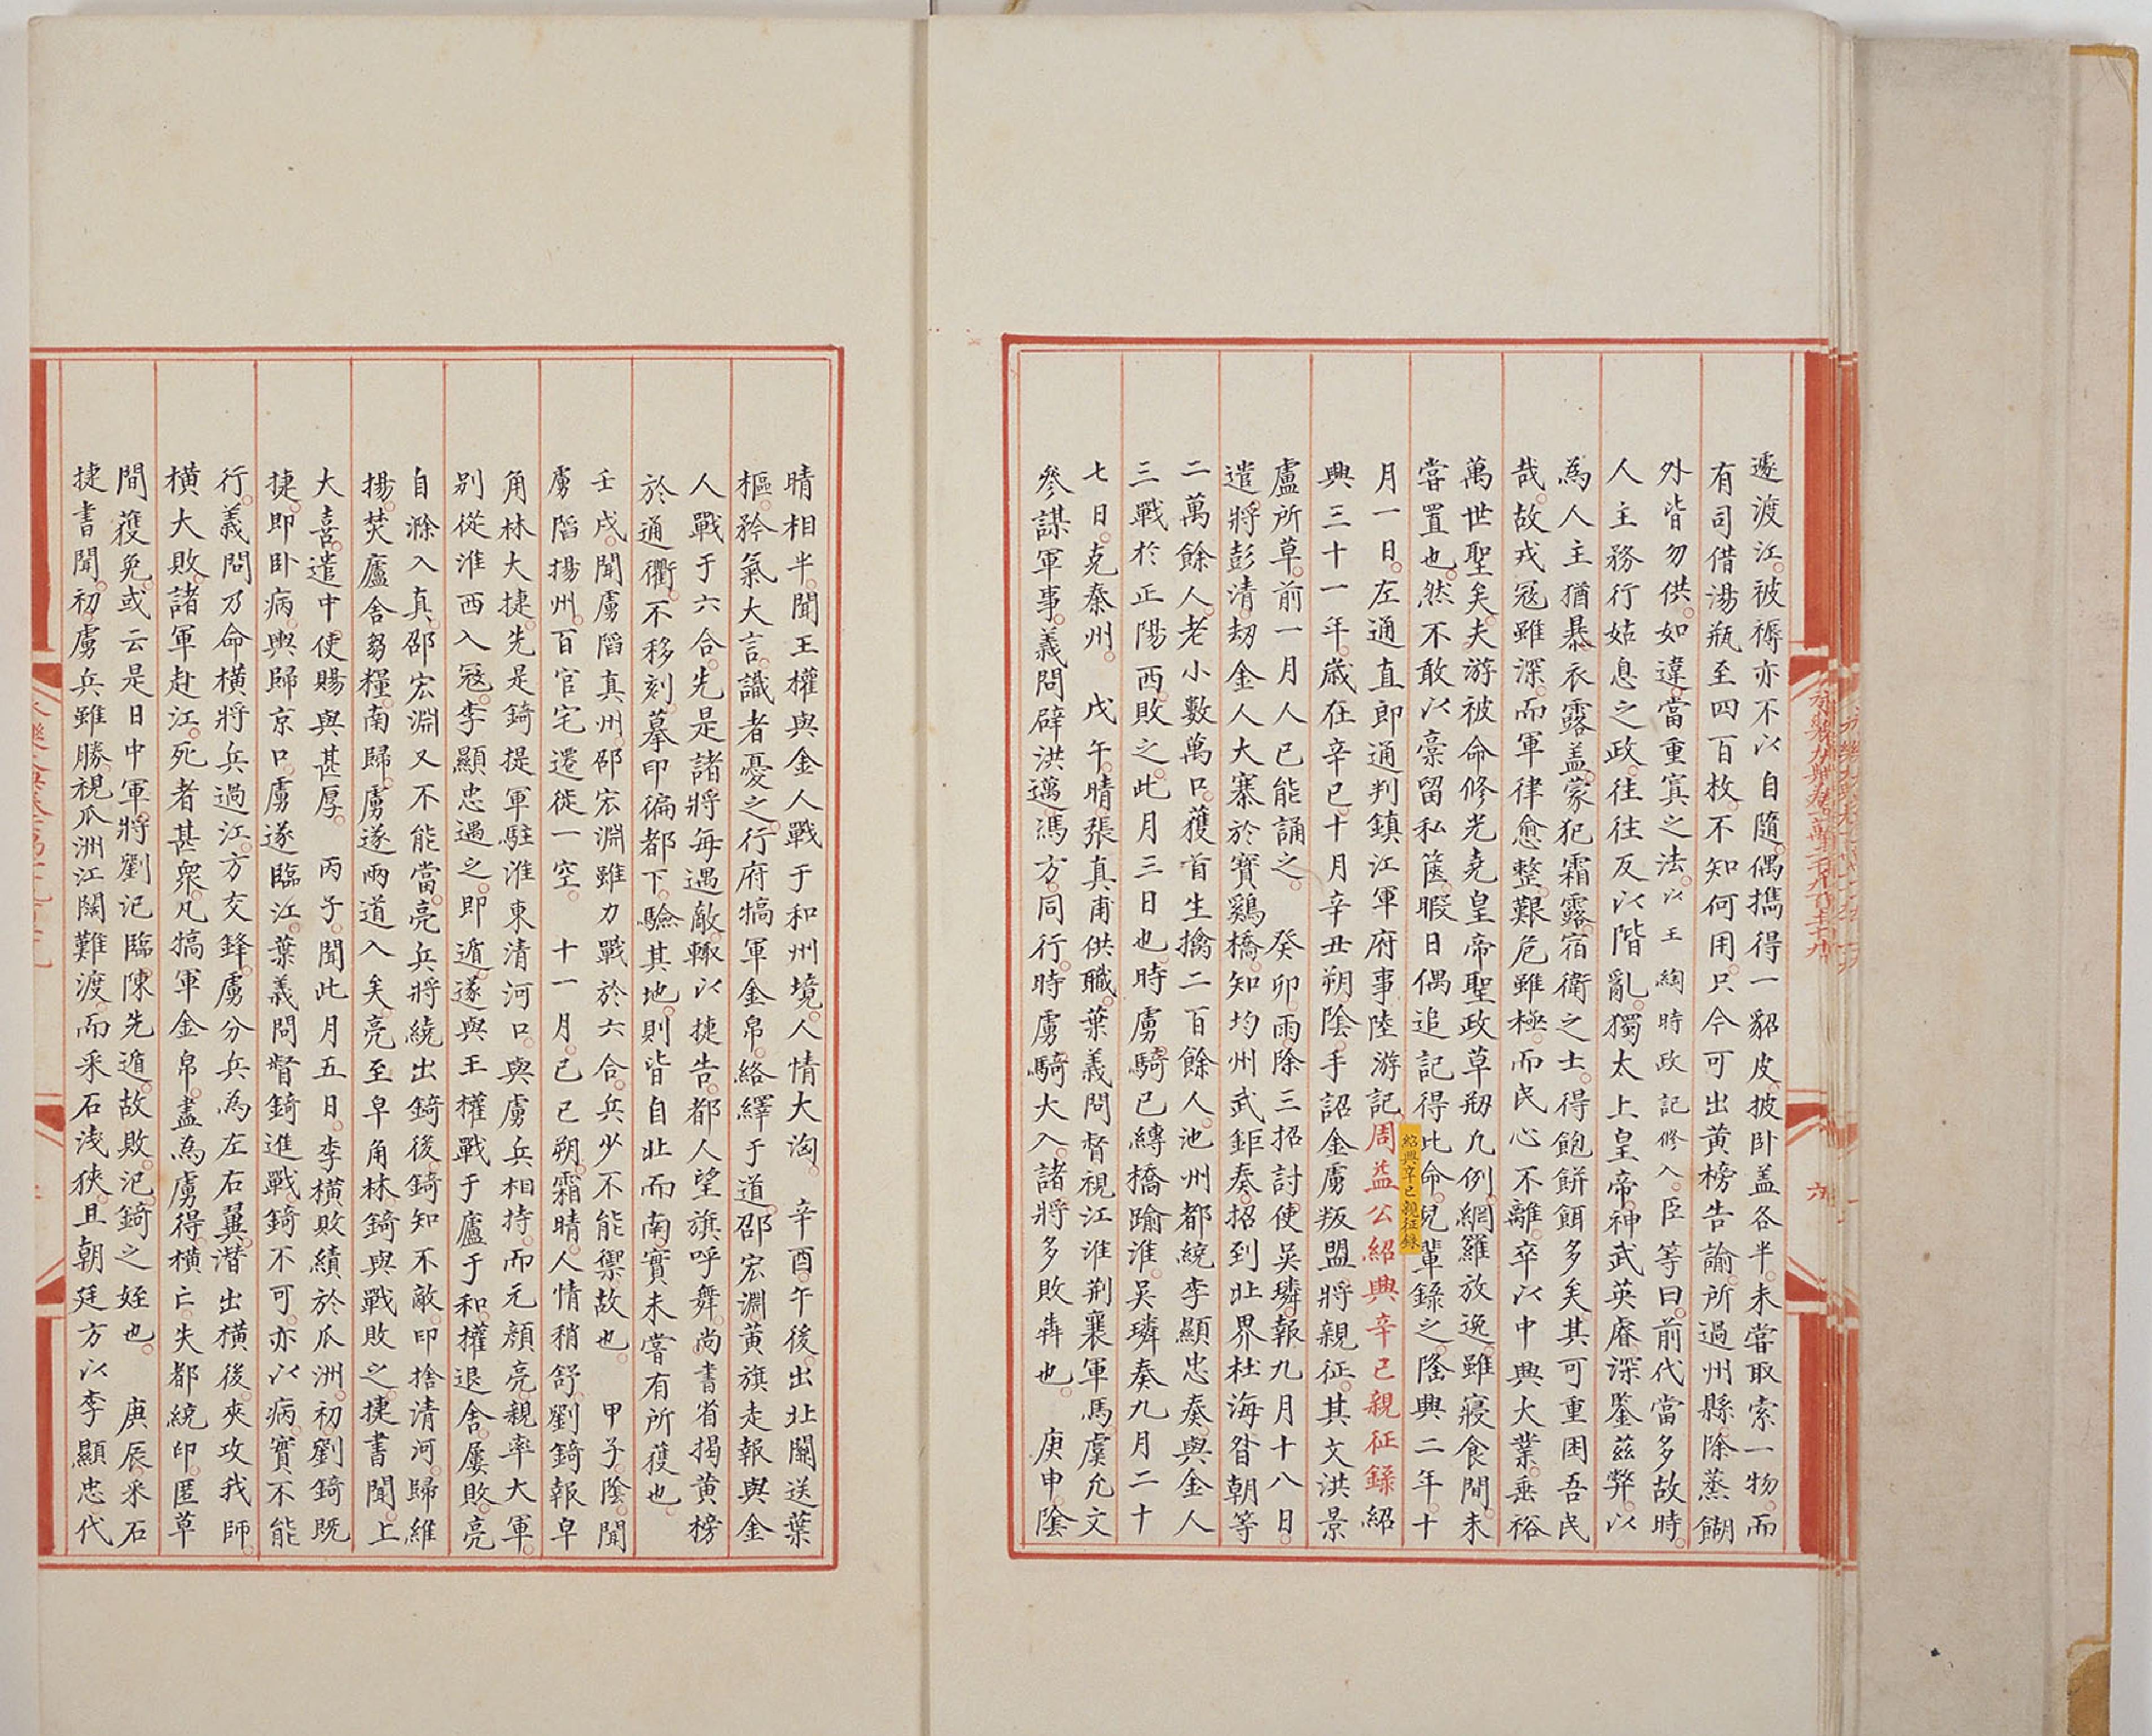 遽渡江被褥亦不以自隨偶攜得一貂皮披卧盖各半未嘗取索一物而
有司借湯瓶至四百枚不知何用只今可出黄榜告諭所過州縣除蒸餬
外皆勿供如違當重寘之法以王綯時政記修入臣等曰前代當多故時
人主務行姑息之政往往反以階亂獨太上皇帝神武英睿深鑒茲弊以
為人主猶暴衣露盖蒙犯霜露宿衛之士得飽餅餌多矣其可重困吾民
哉故戎冦雖深而軍律愈整艱危雖極而民心不離卒以中興大業垂裕
萬世聖矣夫游被命修光堯皇帝聖政草剏凡例網羅放逸雖寢食間未
嘗置也然不敢以稾留私篋暇日偶追記得此命兒輩錄之隆興二年十
月一日左通直郎通判鎮江軍府事陸游記周益公紹興辛巳親征録紹
紹興辛巳親征錄
興三十一年歲在辛巳十月辛丑朔陰手詔金虜叛盟將親征其文洪景
盧所草前一月人已能誦之 癸卯雨除三招討使吴璘報九月十八日
遣將彭清劫金人大寨於寶鷄橋知均州武鉅奏招到北界杜海昝朝等
二萬餘人老小數萬口獲首生擒二百餘人池州都統李顯忠奏與金人
三戰於正陽西敗之此月三日也時虜騎已縛橋踰淮吴璘奏九月二十
七日克秦州 戊午晴張真甫供職葉義問督視江淮荆襄軍馬虞允文
參謀軍事義問辟洪邁馮方同行時虜騎大入諸將多敗犇也 庚申陰
晴相半聞王權與金人戰于和州境人情大洶 辛酉午後出北關送葉
樞矜氣大言識者憂之行府犒軍金帛絡繹于道邵宏淵黄旗走報與金
人戰于六合先是諸將每遇敵輒以捷告都人望旗呼舞尚書省揭黄榜
於通衢不移刻摹印徧都下驗其地則皆自北而南實未嘗有所獲也
壬戌聞虜䧟真州邵宏淵雖力戰於六合兵少不能禦故也 甲子陰聞
虜䧟揚州百官宅遷徙一空 十一月己巳朔霜晴人情稍舒劉錡報皁
角林大捷先是錡提軍駐淮東清河口與虜兵相持而元顔亮親率大軍
别從淮西入冦李顯忠遇之即遁遂與王權戰于廬于和權退舍屢敗亮
自滁入真邵宏淵又不能當亮兵將繞出錡後錡知不敵即捨清河歸維
揚焚廬舍芻糧南歸虜遂兩道入矣亮至皁角林錡與戰敗之捷書聞上
大喜遣中使賜與甚厚 丙子聞此月五日李横敗績於瓜洲初劉錡既
捷即卧病輿歸京口虜遂臨江葉義問督錡進戰錡不可亦以病實不能
行義問乃命横將兵過江方交鋒虜分兵為左右翼潜出横後夾攻我師
横大敗諸軍赴江死者甚衆凡犒軍金帛盡為虜得横亡失都統印匿草
間獲免或云是日中軍將劉汜臨陳先遁故敗汜錡之姪也 庚辰采石
捷書聞初虜兵雖勝視瓜洲江闊難渡而采石淺狹且朝廷方以李顯忠代